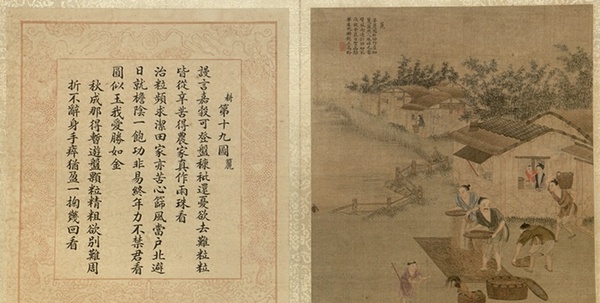 耕
第十九圖
謾言嘉穀可登盤糠秕還憂欲去難粒粒
皆從辛苦得農家真作雨珠看
治粒頻求潔田家亦苦心篩風當戶北避
日就檐陰一飽功非易終年力不禁君看
圓似玉我愛勝如金
秋成那得暫遊盤顆粒精粗欲別難周
折不辭身手瘁猶盈一掬幾回看